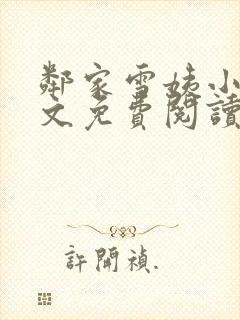 鄰家雪姨小
文免費閱讀
許開禎.